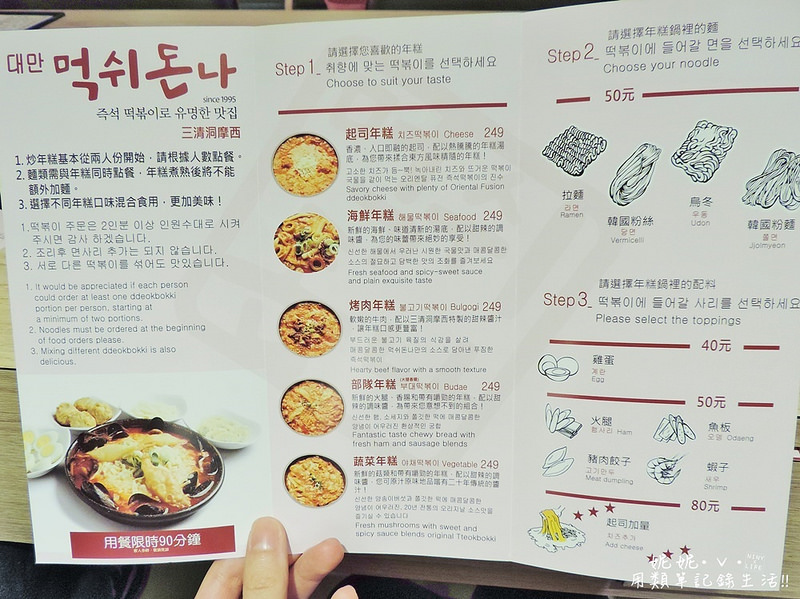 대만 먹쉬돈나
since 1995
즉석 떡볶이로 유명한 맛집
三清洞摩西
1. 炒年糕基本從兩人份開始，請根據人數點餐。
2. 麵類需與年糕同時點餐，年糕煮熟後將不能
額外加麵。
3. 選擇不同年糕口味混合食用，更加美味！
1. 떡볶이 주문은 2인분 이상 인원수대로 시켜
주시면 감사 하겠습니다.
2. 조리후 면사리 추가는 되지 않습니다.
3. 서로 다른 떡볶이를 섞어도 맛있습니다.
1. It would be appreciated if each person
could order at least one ddeokbokki
portion per person, starting at
a minimum of two portions.
2. Noodles must be ordered at the beginning
of food orders please.
3. Mixing different ddeokbokki is also
delicious.
用餐限時90分鐘
請選擇您喜歡的年糕
Step 1_ 취향에 맞는 떡볶이를 선택하세요
Choose to suit your taste
起司年糕 치즈떡볶이 Cheese 249
香濃、入口即融的起司，配以熱騰騰的年糕湯
底，為您帶來揉合東方風味精隨的年糕！
고소한 치즈가 듬~뿍! 녹아내린 치즈와 뜨거운 떡볶이
국물을 같이 먹는 오리엔탈 퓨전 즉석떡볶이의 진수
Savory cheese with plenty of Oriental Fusion
ddeokbokki
海鮮年糕 해물떡볶이 Seafood 249
新鮮的海鮮、味道清新的湯底，配以甜辣的調
味醬，為您的味蕾帶來絕妙的享受！
신선한 해물에서 우러난 시원한 국물맛과 매콤달콤한
소스의 절묘하고 담백한 맛의 조화를 즐겨보세요
Fresh seafood and spicy-sweet sauce
and plain exquisite taste
烤肉年糕 불고기떡볶이 Bulgogi 249
軟嫩的牛肉，配以三清洞摩西特製的甜辣醬汁
，讓年糕口感更豐富！
부드러운 불고기 육질의 식감을 살려
매콤달콤한 먹쉬돈나만의 소스로 담아낸 푸짐한
즉석떡볶이
Hearty beef flavor with a smooth texture
部隊年糕 부대떡볶이 Budae 249
新鮮的火腿、香腸和帶有嚼勁的年糕，配以甜
辣的調味醬，為您帶來您意想不到的組合！
신선한 햄, 소세지와 쫄깃한 떡에 매콤달콤한
양념이 어우러진 환상적인 궁합
Fantastic taste chewy bread with
fresh ham and sausage blends
蔬菜年糕 야채떡볶이 Vegetable 249
新鮮的菇類和帶有嚼勁的年糕，配以甜辣的調
味醬，您可原汁原味地品嚐有二十年傳統的醬
汁！
신선한 양송이버섯과 쫄깃한 떡에 매콤달콤한
양념이 어우러진, 20년 전통의 오리지널 소스맛을
즐기실 수 있습니다
Fresh mushrooms with sweet and
spicy sauce blends original Tteokbokki
請選擇年糕鍋裡的麵
Step 2_ 떡볶이에 들어갈 면을 선택하세요
Choose your noodle
50元
拉麵
라면
Ramen
韓國粉絲
당면
Vermicelli
烏冬
우동
Udon
韓國粉麵
쫄면
Jjolmyeon
請選擇年糕鍋裡的配料
Step 3_ 떡볶이에 들어갈 사리를 선택하세요
Please select the toppings
40元
雞蛋
계란
Egg
50元
火腿
햄사리 Ham
魚板
오뎅 Odaeng
豬肉餃子
고기만두
Meat dumpling
蝦子
새우
Shrimp
80元
起司加量
치즈추가
Add cheese
妮妮
用類單記錄生活!!